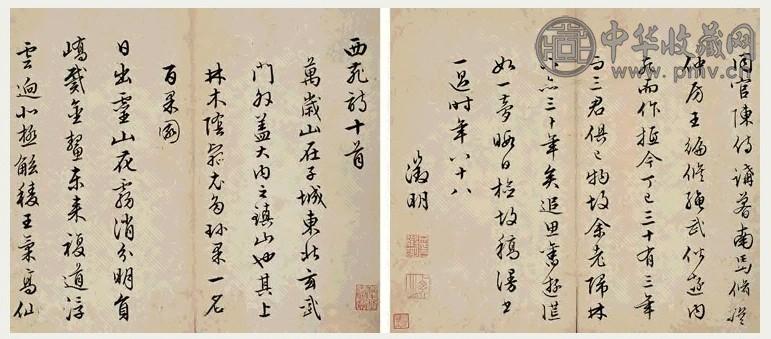 西苑詩十首
萬歲山在子城東北玄武
門外蓋大內之鎮山也其上
林木陰翳尤多珍果一名
百果園
日出靈山花霧消分明員
嶠戴金鰲東來複道浮
雲迥北極觚稜王氣高仙
同官陳侍講魯南馬修撰
仲房王編修繩武偕遊內
苑而作抵今丁巳三十有三年
而三君俱已物故余老歸林
下亦三十年矣追思舊遊恍
如一夢晦日檢故稿漫書
一過時年八十八
徵明
中华收藏网
www.pmv.cn